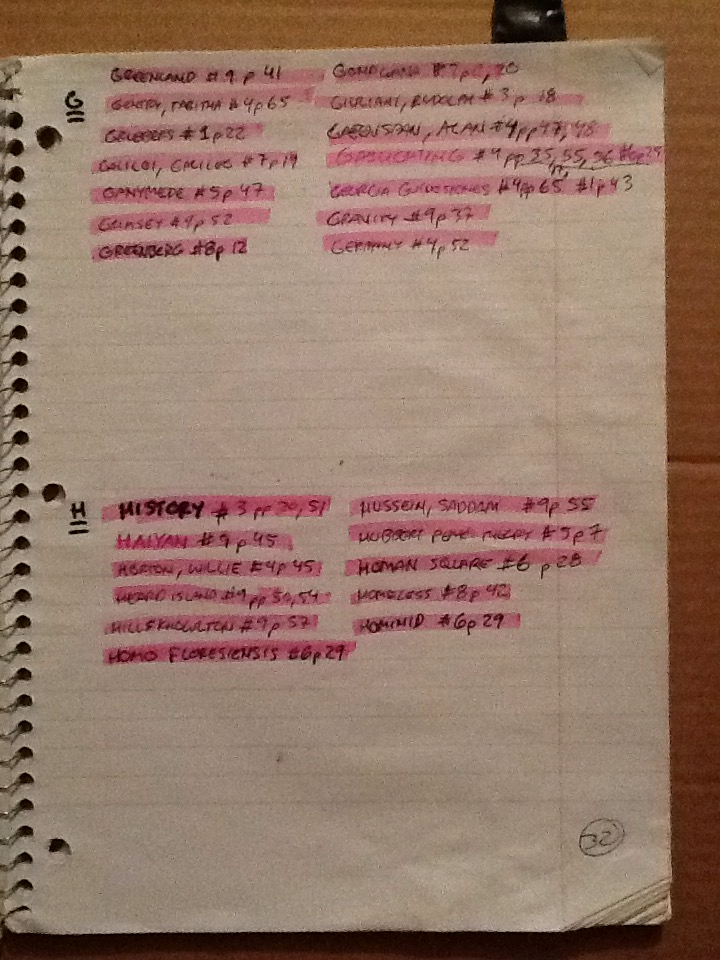 G
GREENLAND #9 p 41
GENTRY, TABITHA #4p65
GRUBERS #1p22
GALILEI, GALILEO #7p19
GANYMEDE #5p47
GRIMSEY #9p52
GREENBERG #8p 12
GONDWANA
GIULIANI, RUDOLPH #3 p 18
ALAN #4pp47, 48
GASLIGHTING #4 pp 25, 55, 56 #6p29
GEORGIA GUIDESTONES #4pp 65 #1p43
GRAVITY #9p37
GERMANY #4p52
H
HISTORY #3 pp 20, 51
HAIYAN #9p45
HORTON, WILLIE #4p45
HEARD ISLAND #9 pp 54
HILL & KNOWLTON #9p57
HOMO FLORESIENSIS #6p29
HUSSEIN, SADDAM #9p 55
HUBBERT PEAK THEORY #5p7
HOMAN SQUARE #6 p28
HOMELESS #8p42
HOMINID #6p29
32